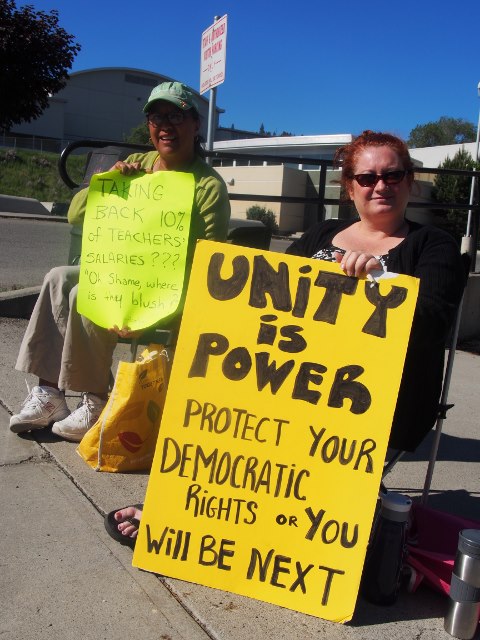 TAKING
BACK 10%
of TEACHERS'
SALARIES ???
"Oh Shame, where
is thy blush?
UNiTY
is
POWER
PROTECT YOUR
DEMOCRATIC
RiGHTS OR YOU
Will BE NEXT